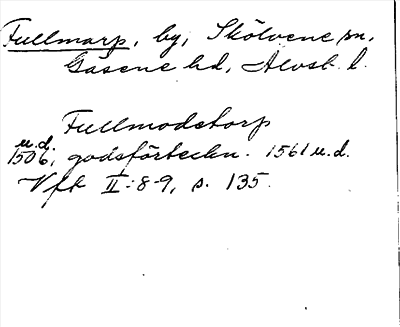 Fullmarp, by, Skölvene sn,
Gäsene hd, Älvsb. l.
Fullmodstorp
u.d.
1506, godsförteckn. 1561 u.d.
Vft II:8-9, s. 135.